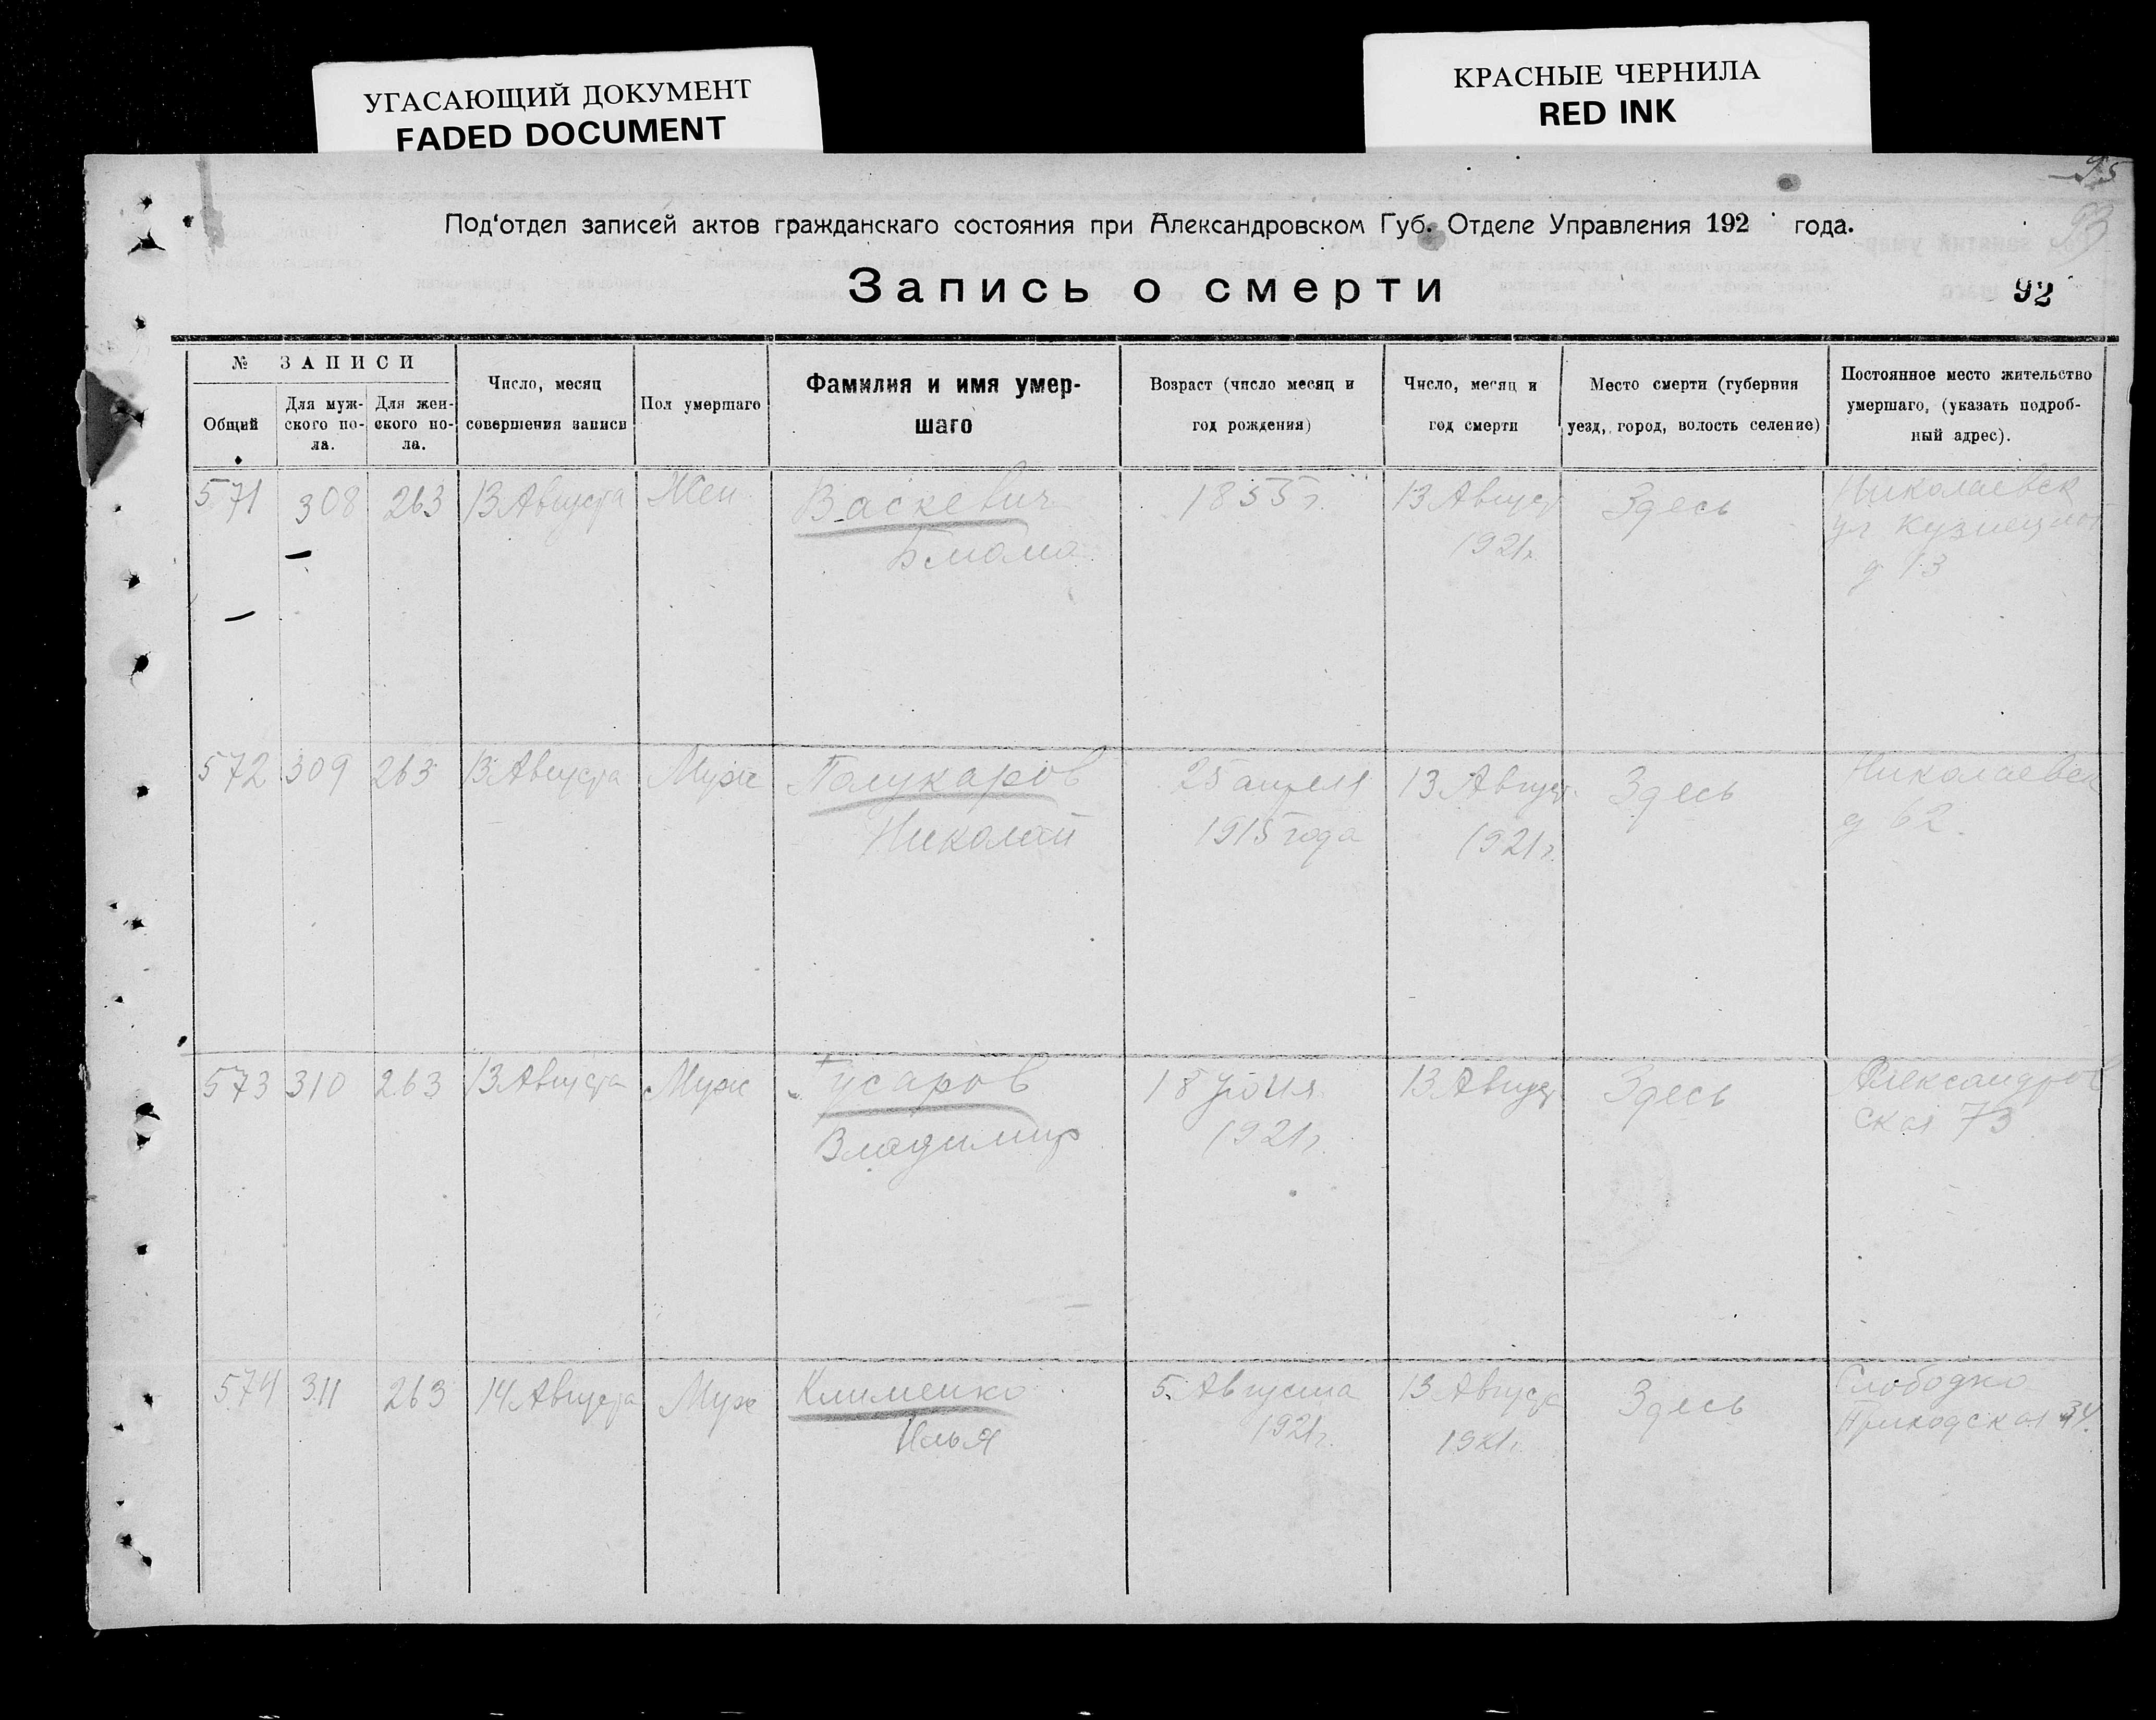 УГАСАЮЩИЙ ДОКУМЕНТ
FADED DOCUMENT
КРАСНЫЕ ЧЕРНИЛА
RED INK
95
93
Под'отдел записей актов гражданскаго состояния при Александровском Губ. Отделе Управления 192 года.
Запись о смерти
92
№ ЗАПИСИ
Общий
Для муж-
ского по-
ла.
Для жен-
ского по-
ла.
Число, месяц
совершения записи
Пол умершаго
Фамилия и имя умер-
шаго
Возраст (число месяц и
год рождения)
Число, месяц и
год смерти
Место смерти (губерния
уезд, город, волость селение)
Постоянное место жительство
умершаго, (указать подроб-
ный адрес).
571 308 263 13 Августа Жен Васкевич 1855 г. 13 Август Здесь Николаевск
1921 г. ул
д 13
572 309 263 13 Августа Муж Полукаров 25 апреля 13 Август. Здесь Николаевск
Николай 1915 года 1921 г. д 62.
573 310 263 13 Августа Муж Гусаров 18 13 Август Здесь Александров
Владимир 1921 г. ская 73
574 311 263 14 Августа Муж Клименко 5 Августа 13 Август Здесь Слободка
Илья 1921 г. 1921 г. Приходская 34.